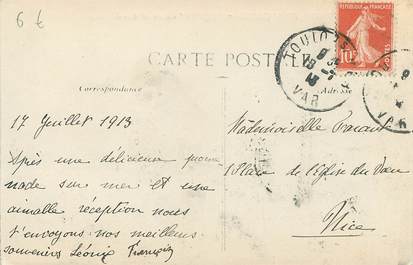 6 €
CARTE POSTALE
RÉPUBLIQUE FRANÇAISE
10
POSTES
TOULON
VAR
Correspondance
Adresse
17 Juillet 1913
Après une délicieuse prome
nade sur mer et une
aimable réception nous
t'envoyons nos meilleurs
souvenirs Léonie François
Mademoiselle
1 Place de l'Église du Vœu
Nice